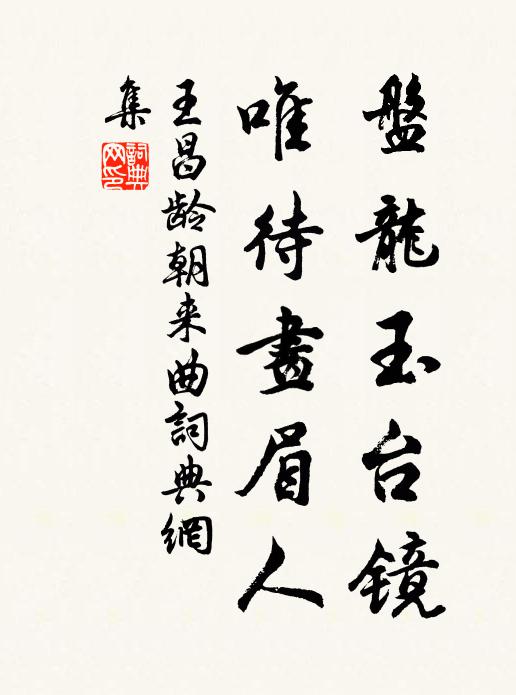 盤龍玉台镜
唯待畫眉人
王昌龄朝来曲詞典網
集
詞典
网印